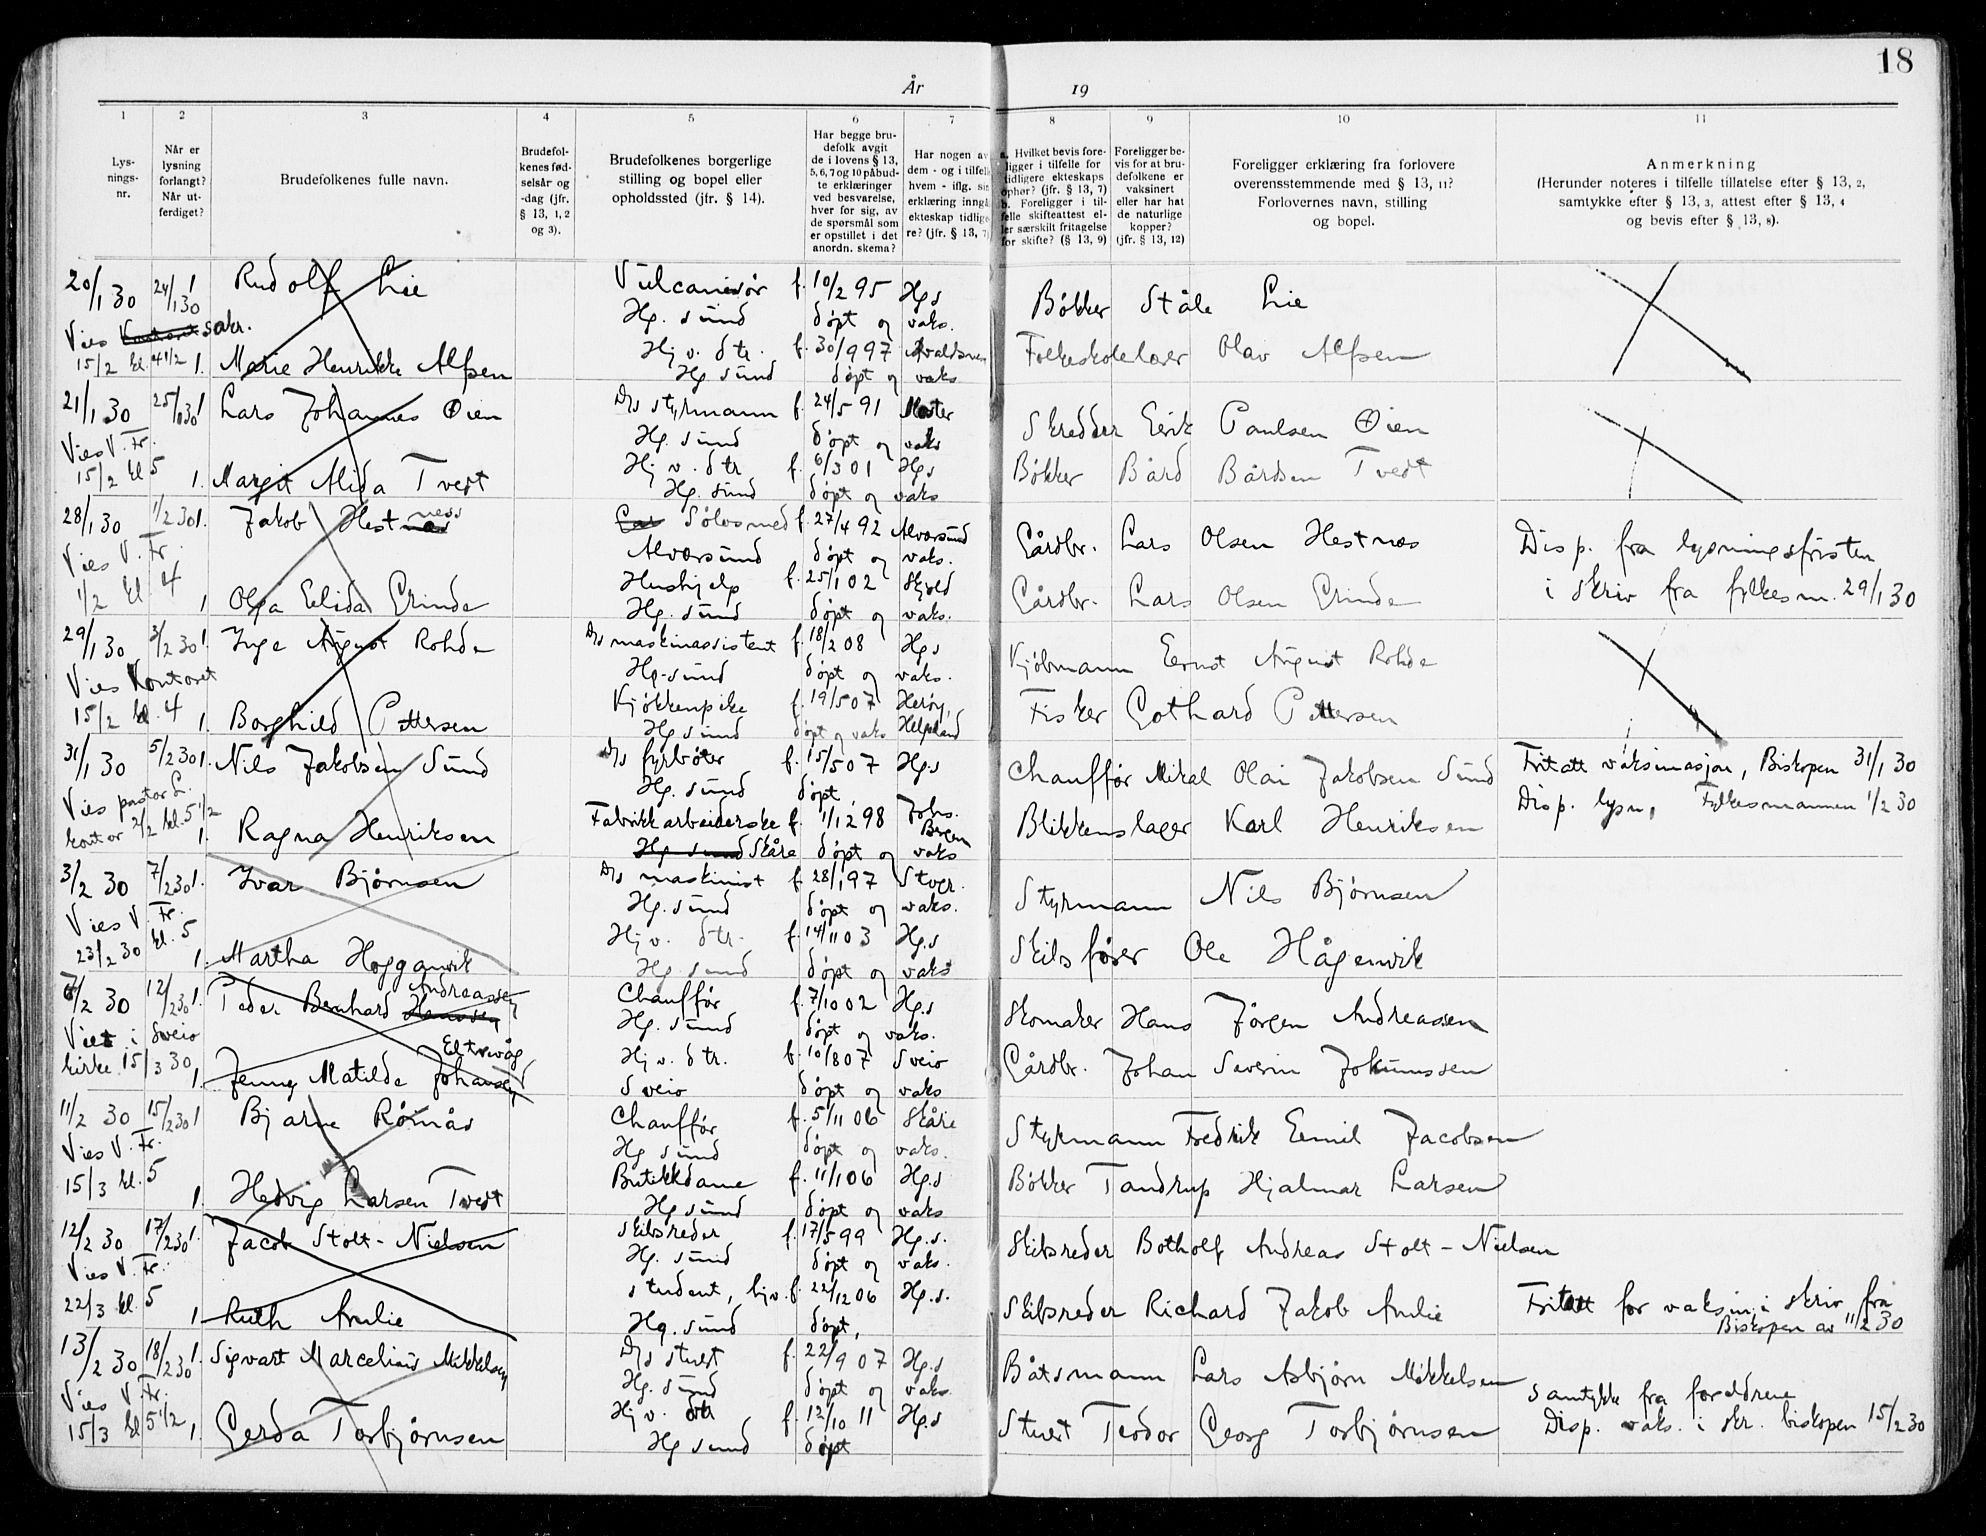 18
År 19
1 2 3 4 5 6 7 8 9 10 11
Lys-
nings-
nr.
Når er
lysning
forlangt?
Når ut-
ferdiget?
Brudefolkenes fulle navn.
Brudefol-
kenes fød-
selsår og
-dag (jfr.
§ 13, 1, 2
og 3).
Brudefolkenes borgerlige
stilling og bopel eller
opholdssted (jfr. § 14).
Har begge bru-
defolk avgit
de i lovens § 13,
5, 6, 7 og 10 påbud-
te erklæringer
ved besvarelse,
hver for sig, av
de spørsmål som
er opstillet i det
anordn. skema?
Har nogen av
dem - og i tilfelle
hvem - iflg. sin
erklæring inngå
ekteskap tidlige-
re? (jfr. § 13, 7)
a. Hvilket bevis fore-
ligger i tilfelle for
tidligere ekteskaps
ophør? (jfr. § 13, 7)
b. Foreligger i til-
felle skifteattest el-
ler særskilt fritagelse
for skifte? (§ 13, 9)
Foreligger be-
vis for at bru-
defolkene er
vaksinert
eller har hat
de naturlige
kopper?
(jfr. § 13, 12)
Foreligger erklæring fra forlovere
overensstemmende med § 13, 11?
Forlovernes navn, stilling
og bopel.
Anmerkning
(Herunder noteres i tilfelle tillatelse efter § 13, 2,
samtykke efter § 13, 3, attest efter § 13, 4
og bevis efter § 13, 8).
20/1 30 24/1 30 1 Rudolf Lie Vulcanisør f. 10/2 95 Hgs Bøkker Ståle Lie
Vies Kontoret sakr. Hg. sund døpt og vaks.
15/2 kl. 4 1/2 1. Marie Henrikke Alfsen Hj. v. dtr. f. 30/9 97 Avaldsnes Folkeskolelærer Olav Alfsen
Hg sund døpt og vaks
21/1 30 25/1 30 1 Lars Johannes Øien D/s styrmann f. 24/5 91 Moster Skredder Eirik Paulsen Øien
Vies V. Fr. Hg. sund døpt og vaks
15/2 kl 5 1. Margit Alida Tvedt Hj v. dtr f. 6/3 01 Hgs Bøkker Bård Bårdsen Tvedt
Hg. sund døpt og vaks
28/1 30 1/2 30 1. Jakob Hestnæs ness Sølvsmed f. 27/4 92 Alversund Gårdbr. Lars Olsen Hestnes Disp. fra lysningsfristen
Vies V. Fr. Alversund døpt og vaks.
1/2 kl 4 1 Olga Elida Grinde Hushjelp f. 25/1 02 Skjold Gårdbr. Lars Olsen Grinde i skriv fra fylkesm. 29/1 30
Hg. sund døpt og vaks.
29/1 30 3/2 30 1 Inge August Rohde D/s maskinassistent f. 18/2 08 Hgs Kjøbmann Ernst August Rohde
Vies Kontoret Hg. sund døpt og vaks.
15/2 kl. 4 1. Borghild Pettersen Kjøkkenpike f. 19/5 07 Herøy, Fisker Gothard Pettersen
Hg sund døpt og vaks Helgeland
31/1 30 5/2 30 1. Nils Jakobsen Sund D/s fyrbøter f. 15/5 07 Hgs Chauffør Mikal Olai Jakobsen Sund Fritatt vaksinasjon, Biskopen 31/1 30
Vies pastor L. Hg. sund døpt
kontor 2/2 kl. 5 1/2 1. Ragna Henriksen Fabrikkarbeiderske f. 1/12 98 Johs. Bergen Blikkenslager Karl Henriksen Disp. lysn, Fylkesmannen 1/2 30
Hg sund Skåre døpt og vaks
3/2 30 7/2 30 1. Ivar Bjørnsen D/s maskinist f. 28/1 97 Stvgr. Styrmann Nils Bjørnsen
Vies V. Fr. Hg. sund døpt og vaks.
23/2 30 kl. 5 1. Martha Hogganvik Hj v. dtr. f. 14/11 03 Hg.s Skibsfører Ole Hågenvik
Hg sund døpt og vaks
6/2 30 12/2 30 1. Peder Bernhard Hanssen Andreassen Chauffør f. 7/10 02 Hg.s Skomaker Hans Jørgen Andreassen
Viet i Sveio Hg. sund døpt og vaks.
kirke 15/3 30 1 Jenny Matilde Johansen Eltrevåg Hj v. dtr. f. 10/8 07 Sveio Gårdbr. Johan Severin Johannssen
Sveio døpt og vaks
11/2 30 15/2 30 1 Bjarne Rømås Chauffør f. 5/11 06 Skåre Styrmann Fredrik Emil Jacobsen
Vies V. Fr. Hg sund døpt og vaks.
15/3 kl. 5 1. Hedvig Larsen Tvedt Butikkdame f. 11/1 06 Hg.s Bøkker Tandrup Hjalmar Larsen
Hg sund døpt og vaks
12/2 30 17/2 30 1. Jacob Stolt-Nielsen Skibsreder f. 17/5 99 Hg.s. Skibsreder Botholf Andreas Stolt-Nielsen
Vies V. Fr. Hg. sund døpt og vaks.
22/3 kl. 5 1 Ruth Amlie student, hjv. f. 22/12 06 Hg.s. Skibsreder Richard Jakob Amlie Fritatt for vaksin i skriv fra
Hg. sund døpt, Biskopen av 11/2 30
13/2 30 18/2 30 1. Sigvart Marcelius Mikkelsen D/s stuert f. 22/9 07 Hg.s Båtsmann Lars Asbjørn Mikkelsen
Vies V. Fr. Hg. sund døpt og vaks. samtykke fra foreldrene
15/3 kl 5 1/2 1 Gerda Torbjørnsen Hj v. dtr f. 12/10 11 Hg.s Stuert Teodor Georg Torbjørnsen Disp. vaks. i skr. biskopen 15/2 30
Hg sund døpt